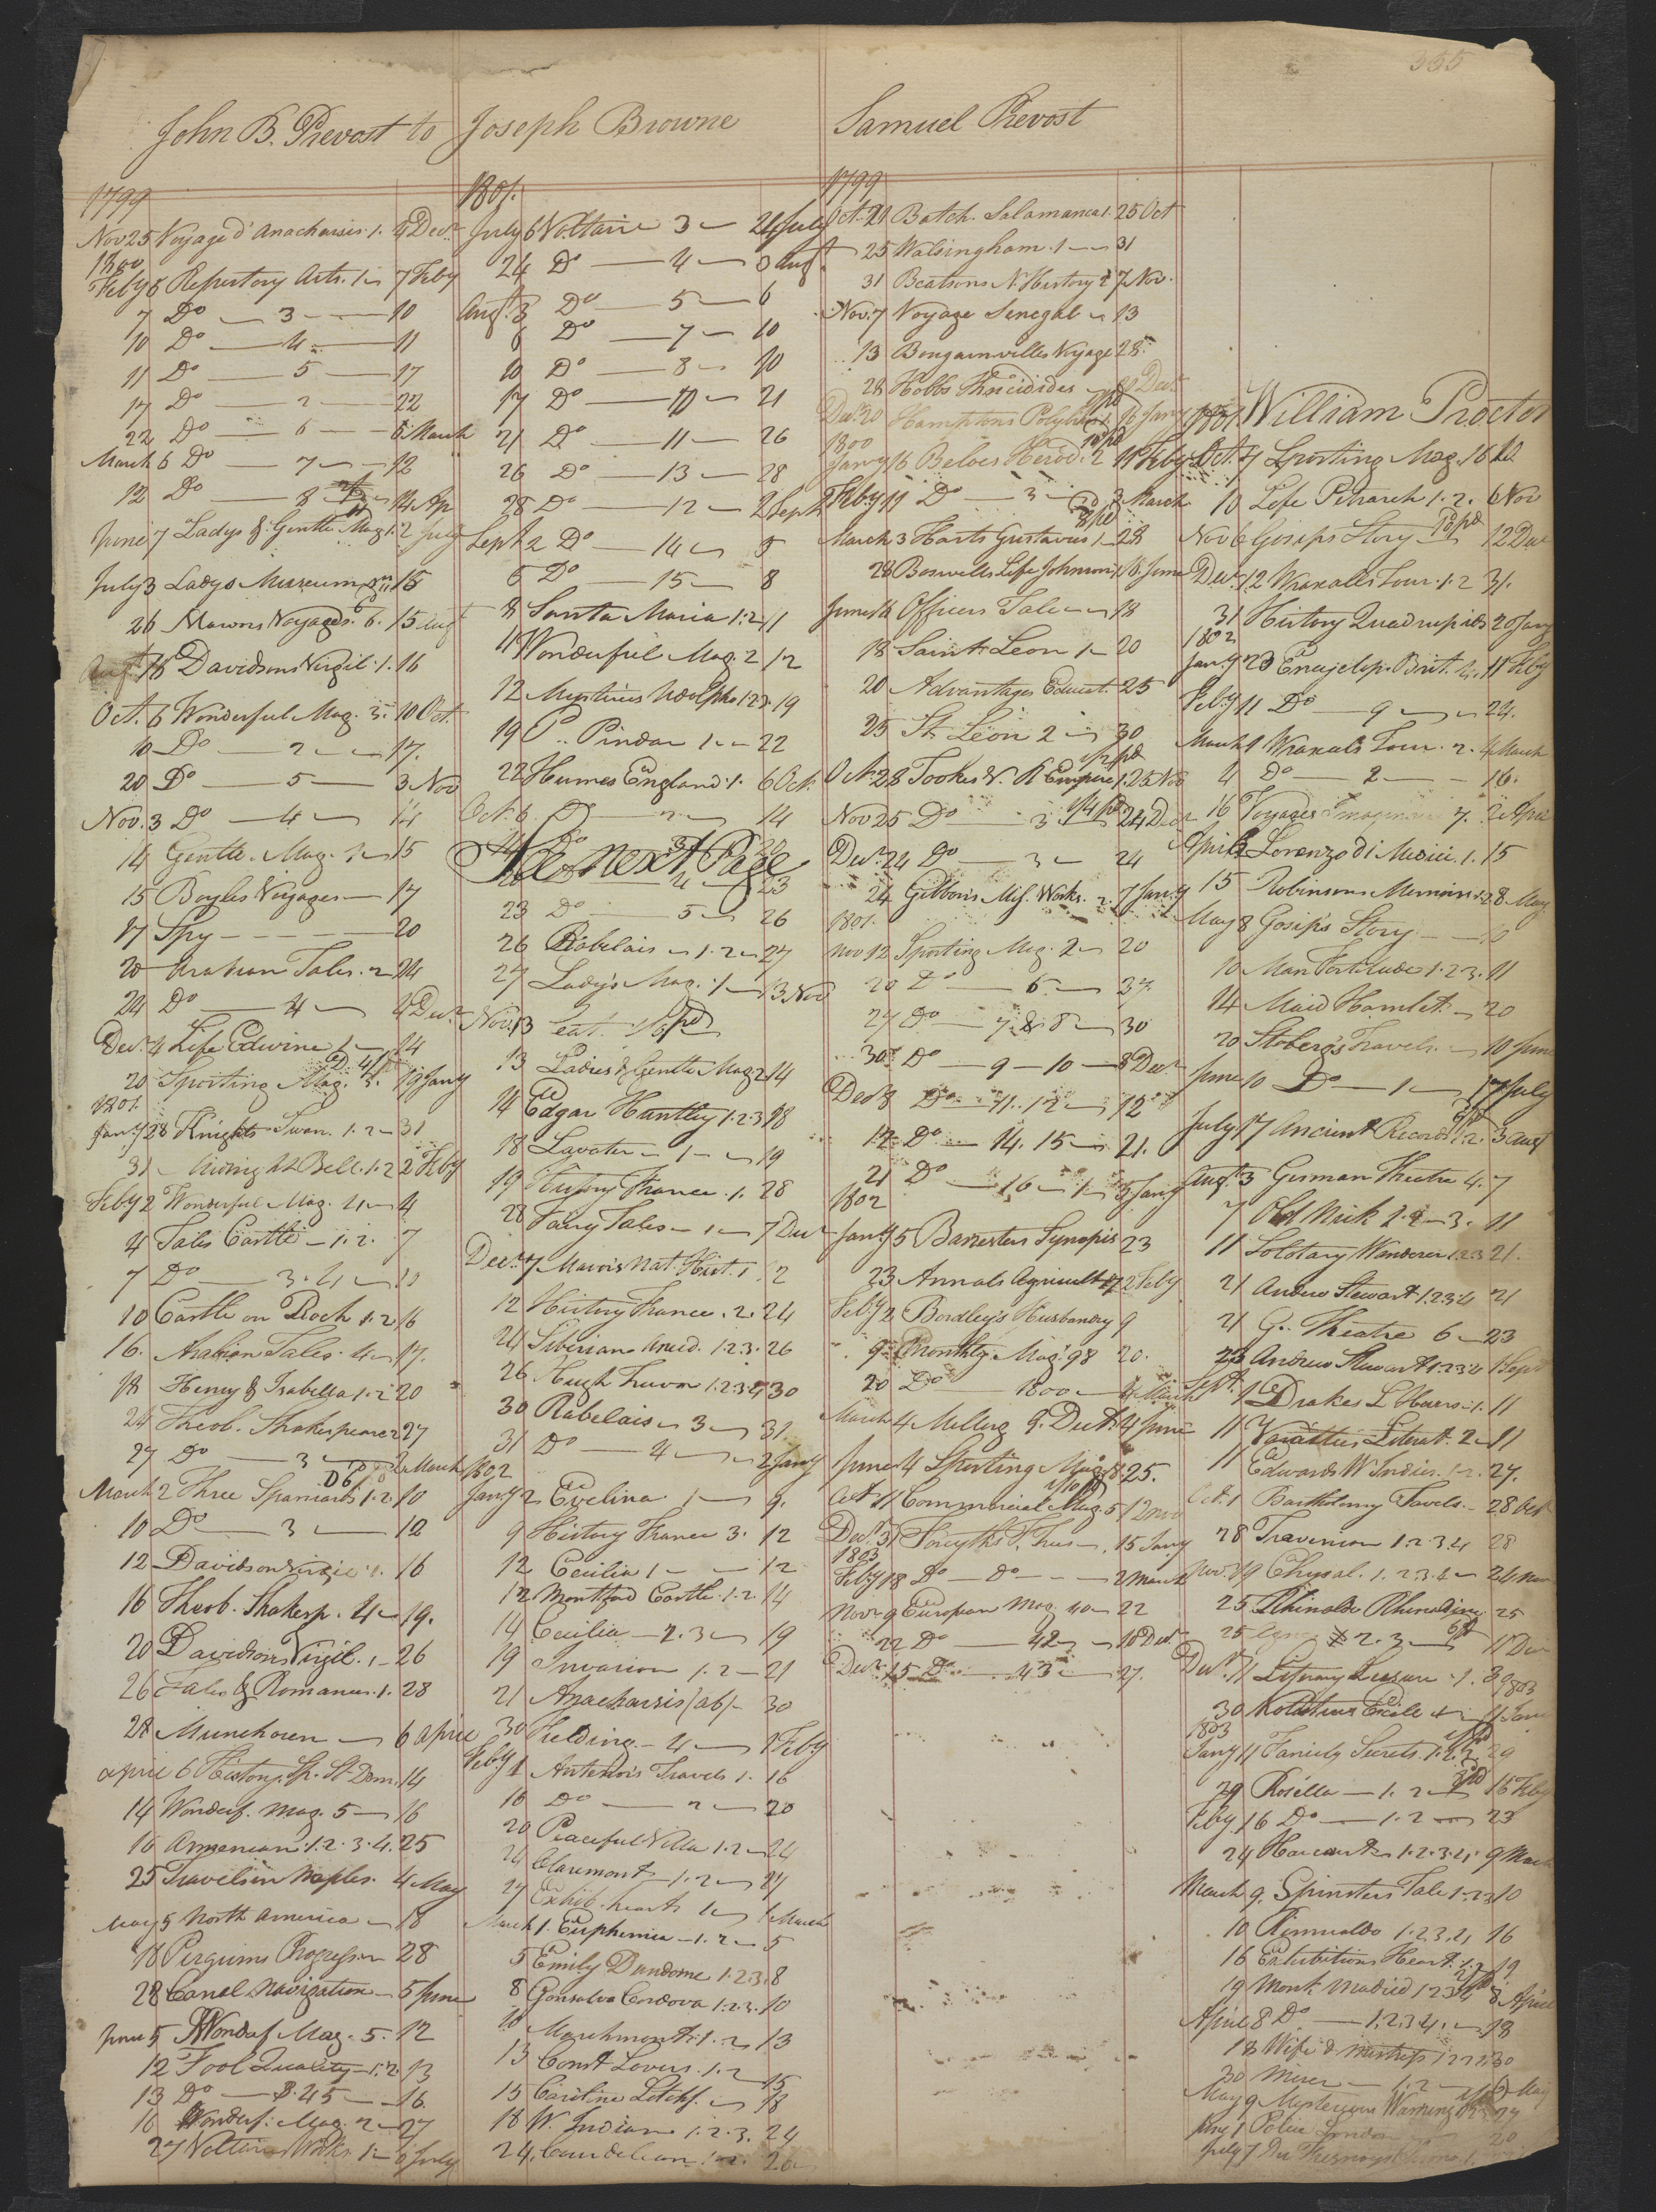 355
John B. Prevost to Joseph Browne
1799
Nov 25 Voyage d'Anacharsis 1. 4 Decr
1800
Feby 6 Repertory Arts. 1 7 Feby
7 Do 3 10
10 Do 4 11
11 Do 5 17
17 Do 2 22
22 Do 6 6 March
March 6 Do 7 12
12 Do 8 14 Ap
June 7 Ladys & Gentle Mag 1. 2 July
July 3 Ladys Museum 15
26 Mavors Voyages 6. 15 Augt
Augt 15 Davidsons Virgil. 1. 16
Oct. 6 Wonderful Mag. 3. 10 Oct.
10 Do 2 17.
20 Do 5 3 Nov
Nov. 3 Do 4 14
14 Gentle. Mag. 15
15 Boyles Voyages 17
17 Spy 20
20 Arabian Tales. 2 24
24 Do 4 4 Decr
Decr 4 Life Edwine 1 14
20 Sporting Mag. 3. 19 Jany
1801
Jany 28 Knights Swan. 1. 2 31
31 Midnight Bell. 1. 2 2 Feby
Feby 2 Wonderful Mag. 4 4
4 Tales Castle 1. 2. 7
7 Do 3. 4 10
10 Castle on Rock 1. 2 16
16. Arabian Tales. 4 17.
18 Henry & Isabella 1. 2 20
24 Theob. Shakespeare 2 27
27 Do 3 2 March
March 2 Three Spaniards 1. 2. 10
10 Do 3 12
12 Davidson Virgil 1. 16
16 Theob. Shakesp. 4 19.
20 Davidsons Virgil. 1 26
26 Tales & Romances. 1. 28
28 Munchosen 6 April
April 6 History Sp. St Dom. 14
14 Wonderf. Mag. 5 16
16 Armenian 1. 2. 3. 4. 25
25 Travels in Naples. 4 May
May 5 North America 18
18 Pirgrims Progress 28
28 Canal Navigation 5 June
June 5 Wonderf Mag. 5. 12
12 Fool Quality 1. 2. 13
13 Do 3. 4 5 16.
16 Wonderf. Mag. 2 27
27 Voltaire Works. 1 6 July
1801.
July 6 Voltaire 3 24 July
24 Do 4 3 Augt
Augt 3 Do 5 6
6 Do 7 10
10 Do 8 10
17 Do 21
21 Do 11 26
26 Do 13 28
28 Do 12 2 Sept
Sept 2 Do 14 5
5 Do 15 8
8 Santa Maria 1. 2 11
11 Wonderful Mag. 2 12
12 Mysteries Udolpho 1. 2 3. 19
19 P. Pindar 1 22
22 Humes England. 1. 6 Oct.
Oct. 6. Do 2 14
14 Do 3 20
See next Page
20 Do 4 23
23 Do 5 26
26 Rabelais 1. 2 27
27 Lady's Mag. 1 13 Nov
Nov. 13
13 Ladies & Gentle Mag 2 14
14 Edgar Huntley 1. 2. 3 18
18 Lavater 1 19
19 History France. 1. 28
28 Fairy Tales 1 7 Decr
Decr 7 Mavors Nat. Hist. 1 12
12 History France. 2. 24
24 Siberian Anecd. 1. 2. 3. 26
26 Hugh Trevor 1. 2. 3. 4 30
30 Rabelais 3 31
31 Do 4 2 Jany
1802
Jany 2 Evelina 1 9.
9 History France 3. 12
12 Cecilia 1 12
12 Montford Castle. 1. 2. 14
14 Cecilia 2. 3 19
19 Invasion 1. 2 21
21 Anacharsis (ab) 30
30 Fielding 4 1 Feby
Feby 1 Antenors Travels 1. 16
16 Do 2 20
20 Peaceful Villa 1. 2 24
24 Claremont 1. 2 27
27 Exhib. hearts 1 March
March 1. Euphemia 1. 2 5
5 Emily Dundorne 1. 2. 3. 8
8 Gonsalva Cordova 1. 2. 3. 10
10 Marchmont 1. 2 13
13 Const Lovers. 1. 2 15
15 Caroline Litchf. 18
18 W. Indian 1. 2. 3. 24
24.
Samuel Prevost
1799
Oct. 21 Batch. Salamanca 1. 25 Oct
25 Walsingham. 1 31
31 Beatsons N. History 2 7 Nov.
Nov. 7 Voyage Senegal 13
13 Bougainvilles Voyage 28.
28 Hobbs Thucidides 20 Decr
Decr 20 Hamptons Polybius 16 Jany
1800
Jany 16 Beloes Herod. 2 11 Feby
Feby 11 Do 3 3 March
March 3 Harts Gustavus 1 28
28 Boswells Life Johnson 1 16 June
June 16 Officers Tale 18
18 Saint Leon 1 20
20 Advantages Educat. 25
25 St. Leon 2 30
Octr 28 Tookes V. R Empire 1. 25 Nov
Nov 25 Do 3 24 Decr
Decr 24 Do 3 24
24 Gibbon's Mis. Works. 2. 7 Jany
1801.
Nov 12 Sporting Mag. 2 20
20 Do 6. 27.
27 Do 7. & 8 30
30 Do 9 10 8 Decr
Decr 8 Do 11. 12 12
12 Do 14. 15 21.
21 Do 16 1 5 Jany
1802
Jany 5 Banesters Synopsis 23
23 Annals Agricult 17 2 Feby
Feby 2 Bordley's Husbandry 9
9 Monthly Mag. 98 20.
20 Do 1800 4 March
March 4 Millers G. Dict. 4 June
June 4 Sporting Mag. 18 25.
Oct 11 Commercial Mag. 5 12 Nov
Decr 31 Forsyths F. Trees 15 Jany
1803
Feby 18 Do Do 2 March
Novr 9 European Mag. 40 22
22 Do 42 18 Decr
Decr 15 Do 43 27.
1801 William Proctor
Oct. 7 Sporting Mag. 16 10.
10 Life Petrarch 1. 2. 6 Nov
Nov 6 Gosips Story 12 Decr
Decr 12 Wraxalls Tour. 1. 2 31.
31 History Quadrupieds 20 Jany
1802
Jany 23 Encyclop. Brit. 4. 11 Feby
Feby 11 Do 9 24.
March 1 Wraxals Tour. 2. 4 March
4 Do 2 16.
16 Voyages 7. 2 April
April 2 Lorenzo di Medici. 1. 15
15 Robinsons Memoirs 28 May
May 8 Gosips Story 10
10 Man Fortitude 1. 2. 3. 11
14 Maid Hamlet 20
20 Stoberg's Travels. 10 June
June 10 Do 1 17 July
July 17 Ancient Records 1. 2. 3 Augt
Augt 3 German Theatre 4. 7
7 Old Nick 1. 2 3. 11
11 Solotary Wanderer 1. 2 3 21.
21 Andrew Stewart 1. 2. 3. 4 21
21 G. Theatre 6 23
23 Andrew Stewart 1. 2. 3. 4 1 Sept
Sept. 1 Drakes L Hours. 1. 11
11 Varieties Literat. 2 11
11 Edwards W Indies. 1. 2. 27.
Oct. 1 Bartholomy Travels. 28 Oct
28 Travenion 1. 2. 3. 4 28
Nov. 19 Chrysal. 1. 2. 3. 4 24 Nov
25 Rhinaldo Rhinaldine 25
25 2. 3. 11 Decr
Decr 11 Literary Leasure. 1.
30
1803
Jany 11 Family Secrets. 1. 2. 29
29 Rosella 1. 2 16 Feby
Feby. 16 Do 1. 2 23
24 Harcourt 1. 2. 3. 4. 9 March
March 9. Spinsters Tale 1. 2. 3 10
10 Rimualdo 1. 2. 3. 4 16
16 Exhibitions Heart 1. 2 19
19 Monk Madrid 1 2 3 4 8 April
April 8 Do 1. 2. 3 4. 18
18 Wife & Mistress 1 2 2 2 30
30 Miser 1. 2 May
May 9 Mysterious Warning
Police London 20
July 7